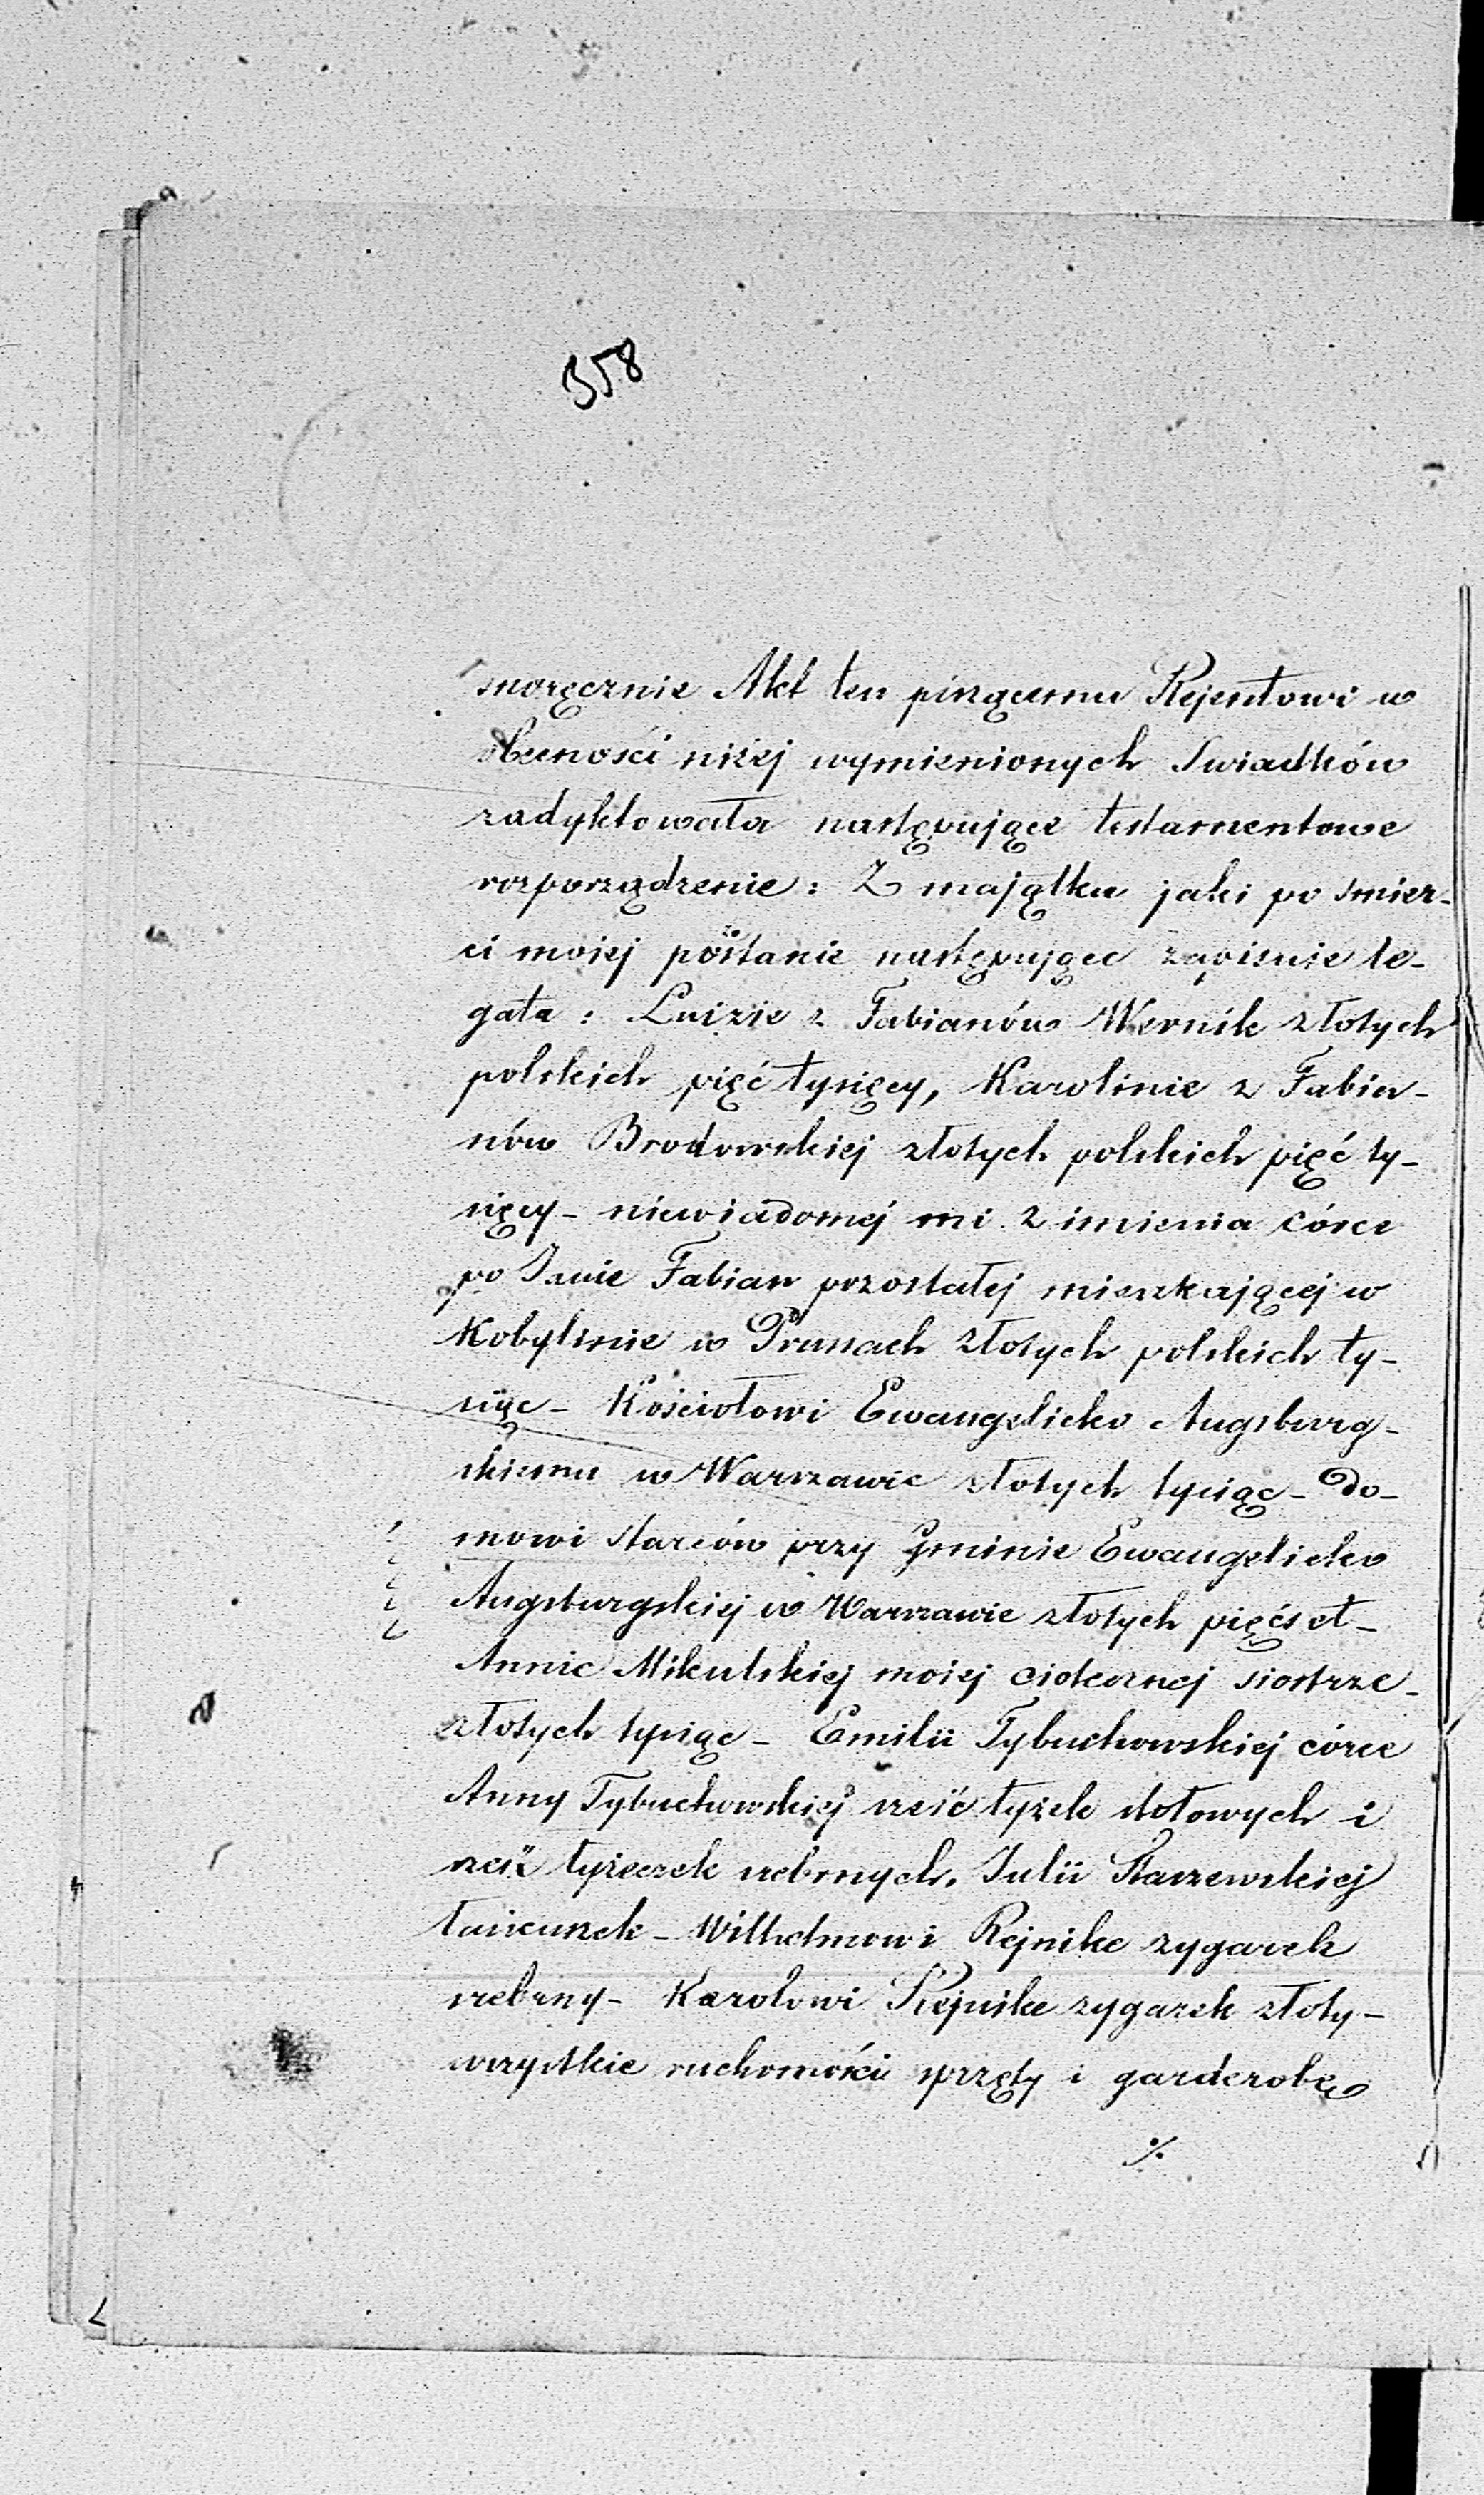 358
moręcznie Akt ten piszącemu Rejentowi w
obecności niżej wymienionych Swiadków
zadyktowała następujące testamentowe
rozporządzenie: Z majątku jaki po smier-
ci mojej postanie następujące zapisuie le-
gata: Luizie z Fabianów Wernik złotych
polskich pięć tysięcy, Karolinie z Fabia-
nów Brodowskiej złotych polskich pięć ty-
sięcy - niewiadomej mi z imienia córce
po Janie Fabian pozostałej mieszkającej w
Kobylinie w Prusach złotych polskich ty-
siąc - Kościołowi Ewangelicko Augsburg-
skiemu w Warszawie złotych tysiąc - Do-
mowi starców przy gminie Ewangelicko
Augsburgskiej w Warszawie złotych pięćset -
Annie Mikulskiej mojej ciotecznej siostrze -
złotych tysiąc - Emilii Tybuchowskiej córce
Anny Tybuchowskiej sześć łyżek stołowych i
sześć łyżeczek srebrnych. Julii Staszewskiej
łańcuszek - Wilhelmowi Rejnike zygarek
srebrny - Karolowi Rejnike zygarek złoty -
wszystkie ruchomości sprzęty i garderobę
./.